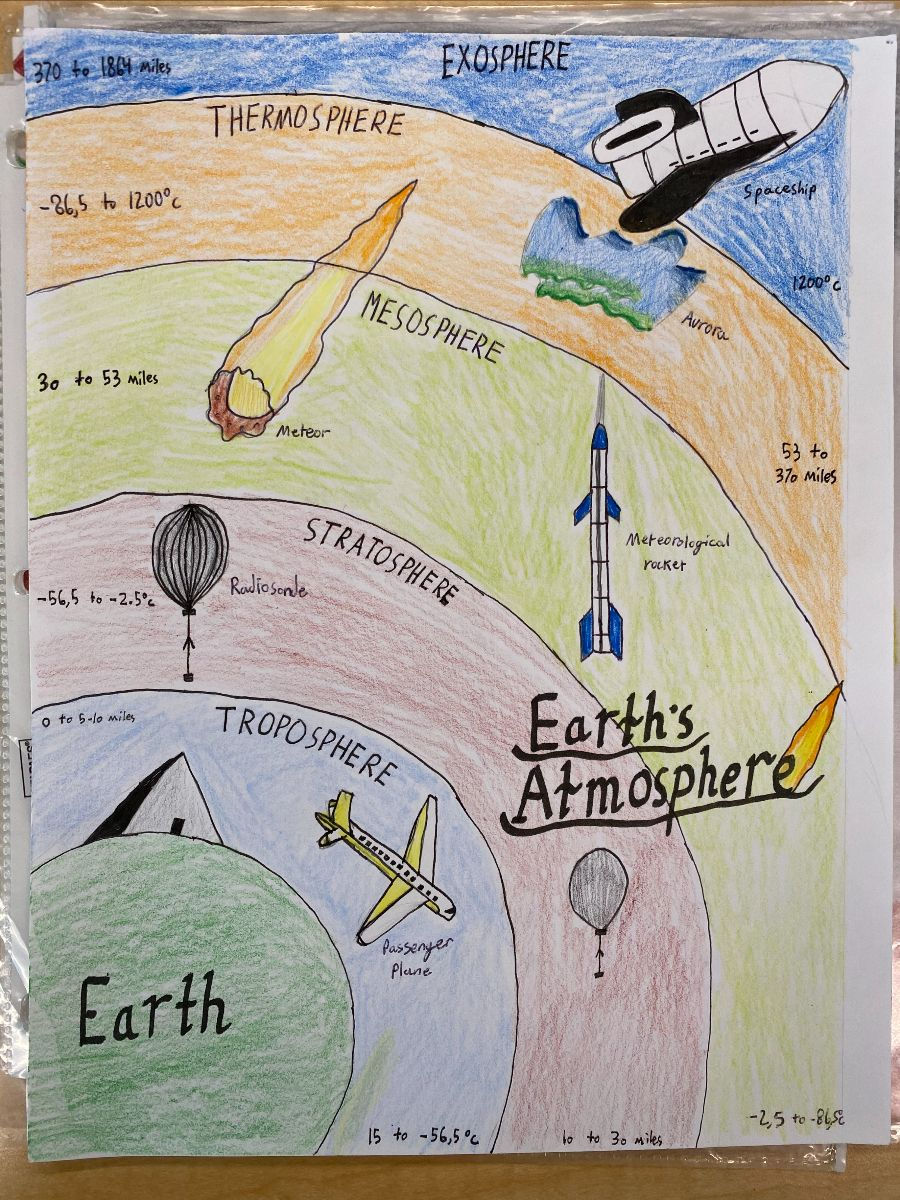 EXOSPHERE
370 to 1864 Miles
THERMOSPHERE
Spaceship
-86,5 to 1200°c
1200°c
Aurora
MESOSPHERE
30 to 53 Miles
Meteor
53 to
370 Miles
STRATOSPHERE
Meteorological
rocket
Radiosonde
-56,5 to -2.5°c
Earth's
Atmosphere
0 to 5-10 miles
TROPOSPHERE
Passenger
Plane
Earth
15 to -56,5°c
10 to 30 miles
-2,5 to -86,5c